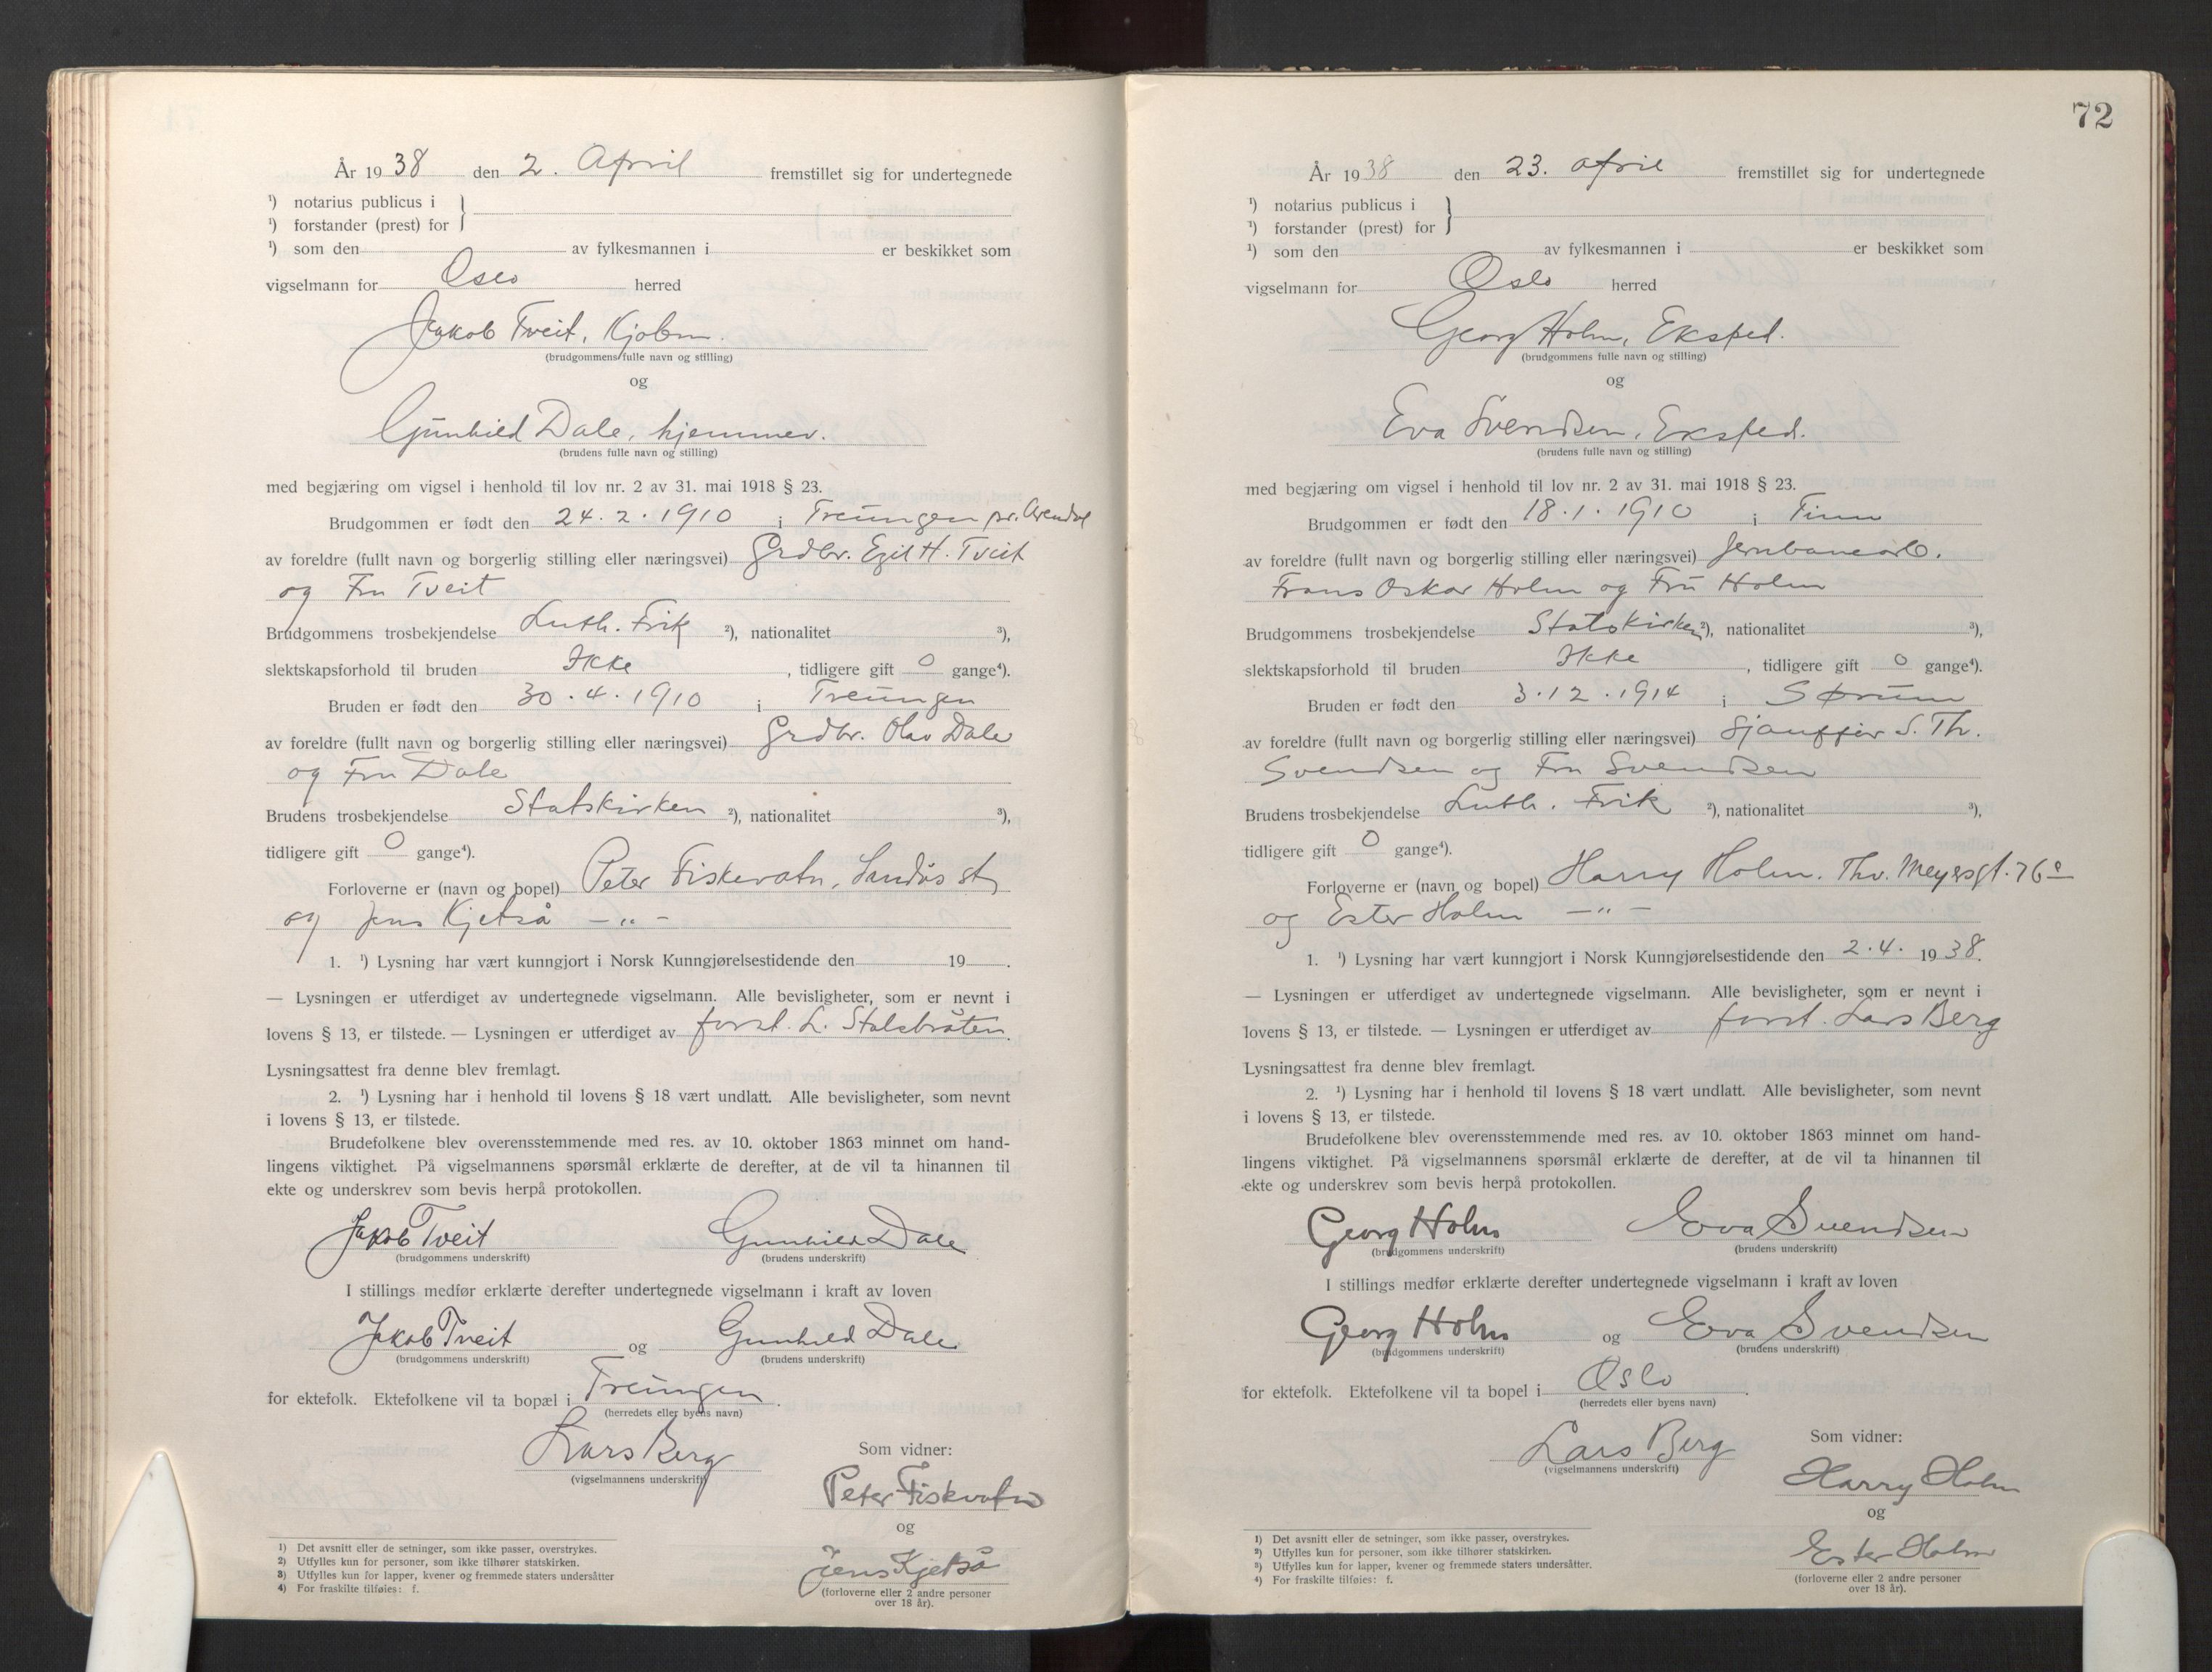 År 1938 den 2. April fremstillet sig for undertegnede
¹) notarius publicus i
¹) forstander (prest) for
¹) som den av fylkesmannen i er beskikket som
vigselmann for Oslo herred
Jakob Tveit, Kjøbm.
(brudgommens fulle navn og stilling)
og
Gunhild Dale, hjemmev.
(brudens fulle navn og stilling)
med begjæring om vigsel i henhold til lov nr. 2 av 31. mai 1918 § 23.
Brudgommen er født den 24.2.1910 i Treungen pr. Arendal
av foreldre (fullt navn og borgerlig stilling eller næringsvei) Grdbr. Egil H. Tveit
og Fru Tveit
Brudgommens trosbekjendelse Luth. Frik ²), nationalitet ³),
slektskapsforhold til bruden Ikke, tidligere gift 0 gange⁴).
Bruden er født den 30.4.1910 i Treungen
av foreldre (fullt navn og borgerlig stilling eller næringsvei) Grdbr. Olav Dale
og Fru Dale
Brudens trosbekjendelse Statskirken ²), nationalitet ³),
tidligere gift 0 gange⁴).
Forloverne er (navn og bopel) Peter Fiskevatn, st
og Jens Kjetså —"—
1. ¹) Lysning har vært kunngjort i Norsk Kunngjørelsestidende den 19 .
— Lysningen er utferdiget av undertegnede vigselmann. Alle bevisligheter, som er nevnt i
lovens § 13, er tilstede. — Lysningen er utferdiget av forst. L. Stalsbråten.
Lysningsattest fra denne blev fremlagt.
2. ¹) Lysning har i henhold til lovens § 18 vært undlatt. Alle bevisligheter, som nevnt
i lovens § 13, er tilstede.
Brudefolkene blev overensstemmende med res. av 10. oktober 1863 minnet om hand-
lingens viktighet. På vigselmannens spørsmål erklærte de derefter, at de vil ta hinannen til
ekte og underskrev som bevis herpå protokollen.
Jakob Tveit Gunhild Dale
(brudgommens underskrift) (brudens underskrift)
I stillings medfør erklærte derefter undertegnede vigselmann i kraft av loven
Jakob Tveit og Gunhild Dale
(brudgommens underskrift) (brudens underskrift)
for ektefolk. Ektefolkene vil ta bopæl i Treungen.
(herredets eller byens navn)
Lars Berg
(vigselmannens underskrift)
Som vidner:
Peter Fiskvatn
og
Jens Kjetså
(forloverne eller 2 andre personer
over 18 år).
1) Det avsnitt eller de setninger, som ikke passer, overstrykes.
2) Utfylles kun for personer, som ikke tilhører statskirken.
3) Utfylles kun for lapper, kvener og fremmede staters undersåtter
4) For fraskilte tilføies: f.
72
År 1938 den 23. april fremstillet sig for undertegnede
¹) notarius publicus i
¹) forstander (prest) for
¹) som den av fylkesmannen i er beskikket som
vigselmann for Oslo herred
Georg Holm, Eksped.
(brudgommens fulle navn og stilling)
og
Eva Svendsen, Eksped.
(brudens fulle navn og stilling)
med begjæring om vigsel i henhold til lov nr. 2 av 31. mai 1918 § 23.
Brudgommen er født den 18.1.1910 i Tinn
av foreldre (fullt navn og borgerlig stilling eller næringsvei) Jernbanearb.
Frans Oskar Holm og Fru Holm
Brudgommens trosbekjendelse Statskirken ²), nationalitet ³),
slektskapsforhold til bruden Ikke, tidligere gift 0 gange⁴).
Bruden er født den 3.12.1914 i Sørum
av foreldre (fullt navn og borgerlig stilling eller næringsvei) Sjauffør S. Th.
Svendsen og Fru Svendsen
Brudens trosbekjendelse Luth. Frik ²), nationalitet ³),
tidligere gift 0 gange⁴).
Forloverne er (navn og bopel) Harry Holm. Thv. Meyersgt. 76
og Ester Holm —"—
1. ¹) Lysning har vært kunngjort i Norsk Kunngjørelsestidende den 2.4. 1938.
— Lysningen er utferdiget av undertegnede vigselmann. Alle bevisligheter, som er nevnt i
lovens § 13, er tilstede. — Lysningen er utferdiget av forst. Lars Berg
Lysningsattest fra denne blev fremlagt.
2. ¹) Lysning har i henhold til lovens § 18 vært undlatt. Alle bevisligheter, som nevnt
i lovens § 13, er tilstede.
Brudefolkene blev overensstemmende med res. av 10. oktober 1863 minnet om hand-
lingens viktighet. På vigselmannens spørsmål erklærte de derefter, at de vil ta hinannen til
ekte og underskrev som bevis herpå protokollen.
Georg Holm Eva Svendsen
(brudgommens underskrift) (brudens underskrift)
I stillings medfør erklærte derefter undertegnede vigselmann i kraft av loven
Georg Holm og Eva Svendsen
(brudgommens underskrift) (brudens underskrift)
for ektefolk. Ektefolkene vil ta bopel i Oslo.
(herredets eller byens navn)
Lars Berg
(vigselmannens underskrift)
Som vidner:
Harry Holm
og
Ester Holm
(forloverne eller 2 andre personer
over 18 år).
1) Det avsnitt eller de setninger, som ikke passer, overstrykes.
²) Utfylles kun for personer, som ikke tilhører statskirken.
³) Utfylles kun for lapper, kvener og fremmede staters undersåtter.
⁴) For fraskilte tilføies: f.